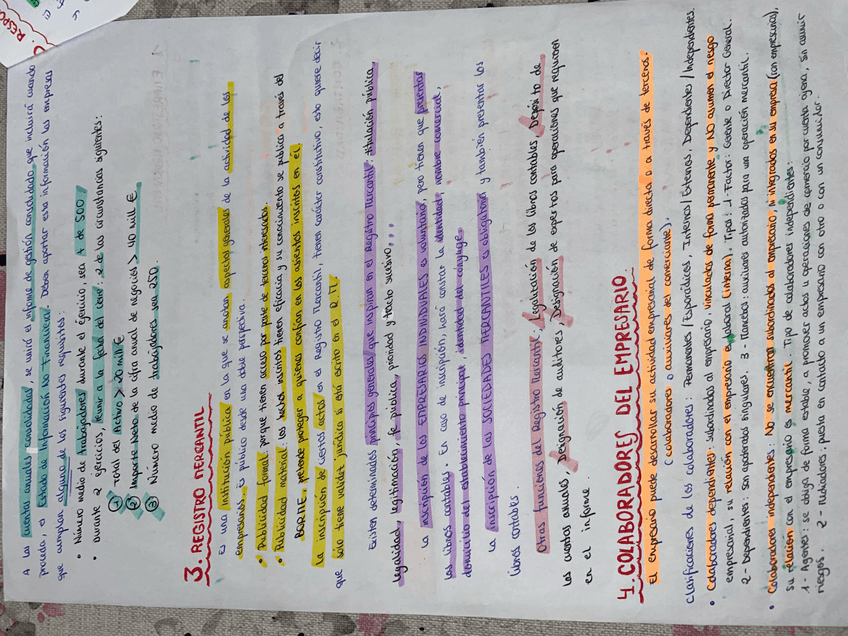 A las cuentas anuales consolidadas, se unirá el informe de gestión consolidado que incluirá cuando
proceda, el Estado de Información No Financiera. Deben aportar esta información las empresas
que cumplan alguno de los siguientes requisitos:
• Número medio de trabajadores durante el ejercicio, sea + de 500.
• Durante 2 ejercicios, reunir a la fecha del cierre, 2 de las circunstancias siguientes:
① Total del Activo > 20 mill €
② Importe Neto de la cifra anual de negocios > 40 mill €
③ Número medio de trabajadores sea 250.
3. REGISTRO MERCANTIL
Es una institución pública en la que se anotan aspectos generales de la actividad de los
empresarios. Es público desde una doble perspectiva.
• Publicidad formal porque tienen acceso por parte de terceros interesados.
• Publicidad material los hechos inscritos tienen eficacia y su conocimiento se publica a través del
BORME, pretende proteger a quienes confían en los asientos inscritos en el
La inscripción de ciertos actos en el Registro Mercantil, tienen carácter constitutivo, esto quiere decir
que solo tiene validez jurídica si está escrito en el R.M
Existen determinados principios generales que inspiran en el Registro Mercantil: titulación pública,
legalidad, legitimación, fe pública, prioridad y tracto sucesivo...
La inscripción de los EMPRESARIOS INDIVIDUALES es voluntario, pero tienen que presentar
los libros contables. En caso de inscripción, hará constar la identidad, nombre comercial,
domicilio del establecimiento principal, identidad del cónyuge.
La inscripción de las SOCIEDADES MERCANTILES es obligatoria y también presentar los
libros contables
Otras funciones del Registro Mercantil: Legalización de los libros contables, Depósito de
las cuentas anuales, Designación de auditores, Designación de expertos para operaciones que requieran
en el informe.
4. COLABORADORES DEL EMPRESARIO
El empresario puede desarrollar su actividad empresarial de forma directa o a través de terceros.
(colaboradores o auxiliares del comerciante).
Clasificaciones de los colaboradores: Permanentes / Esporádicos, Internos / Externos, Dependientes / Independientes.
• Colaboradores dependientes: subordinados al empresario, vinculados de forma permanente y NO asumen el riesgo
empresarial, su relación con el empresario es laboral (interna). Tipos: 1- Factor: Gerente o Director General.
2- Dependientes: Son apoderados singulares. 3- Mancebos: auxiliares autorizados para una operación mercantil.
• Colaboradores independientes: No se encuentran subordinados al empresario, ni integrados en su empresa (son empresarios),
su relación con el empresario es mercantil. Tipo de colaboradores independientes:
1- Agentes: se obliga de forma estable, a promover actos u operaciones de comercio por cuenta ajena, sin asumir
riesgos. 2- Mediadores: ponen en contacto a un empresario con otro o con un consumidor.